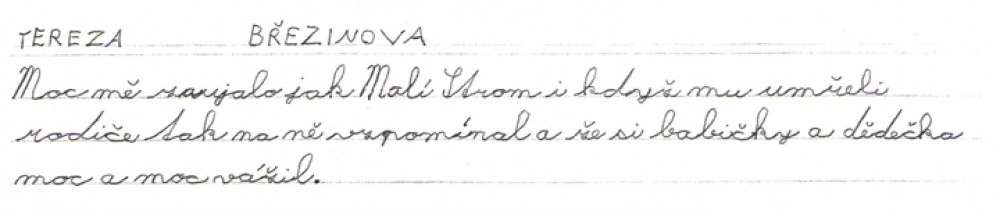 TEREZA BŘEZINOVA
Moc mě zaujalo jak Malí Strom i když mu umřeli
rodiče tak na ně vzpomínal a že si babičky a dědečka
moc a moc vážil.